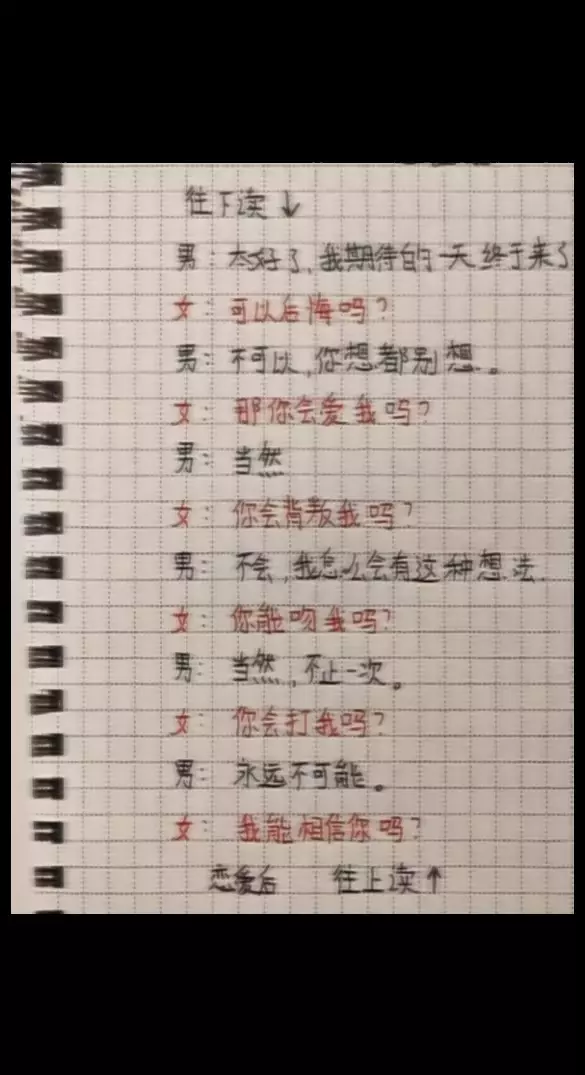 往下读↓
男：太好了，我期待的一天终于来了
女：可以后悔吗？
男：不可以，你想都别想。
女：那你会爱我吗？
男：当然
女：你会背叛我吗？
男：不会，我怎么会有这种想法.
女：你能吻我吗？
男：当然，不止一次。
女：你会打我吗？
男：永远不可能。
女：我能相信你吗？
恋爱后 往上读↑